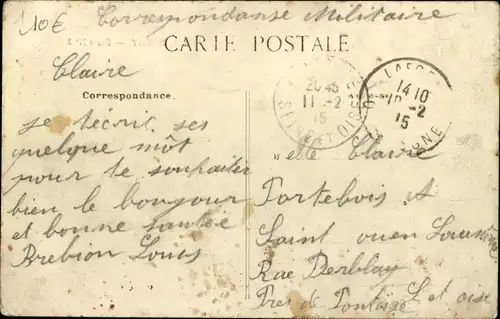 10€ Correspondanse Militaire
CARTE POSTALE
Claire
Correspondance.
je técrit ses
quelque môt
pour te souhaiter
bien le bonjour
et bonne santée
Brebion Louis
20 45
11 -2
15
SEINE ET OISE
14 10
10 -2
15
elle Claire
Portebois at
Saint ouen Loumône
Rue Derblay
Pres de Pontoise S et oise